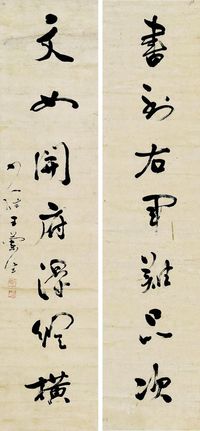 書到右軍難品次
文如開府得縱橫